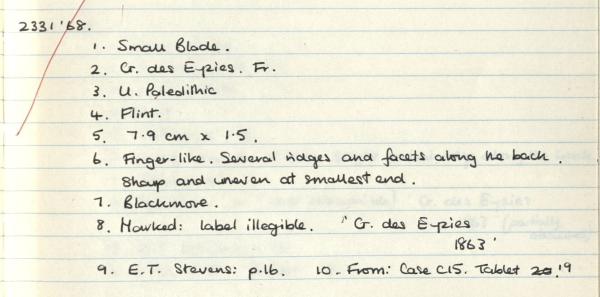 2331 '68.
1. Small Blade.
2. Gr. des Eyzies. Fr.
3. U. Paleolithic
4. Flint.
5. 7.9 cm x 1.5.
6. Finger-like. Several ridges and facets along the back.
Sharp and uneven at smallest end.
7. Blackmore.
8. Marked: label illegible. "Gr. des Eyzies
1863'
9. E.T. Stevens: p.16. 10. From: Case C15. Tablet 19